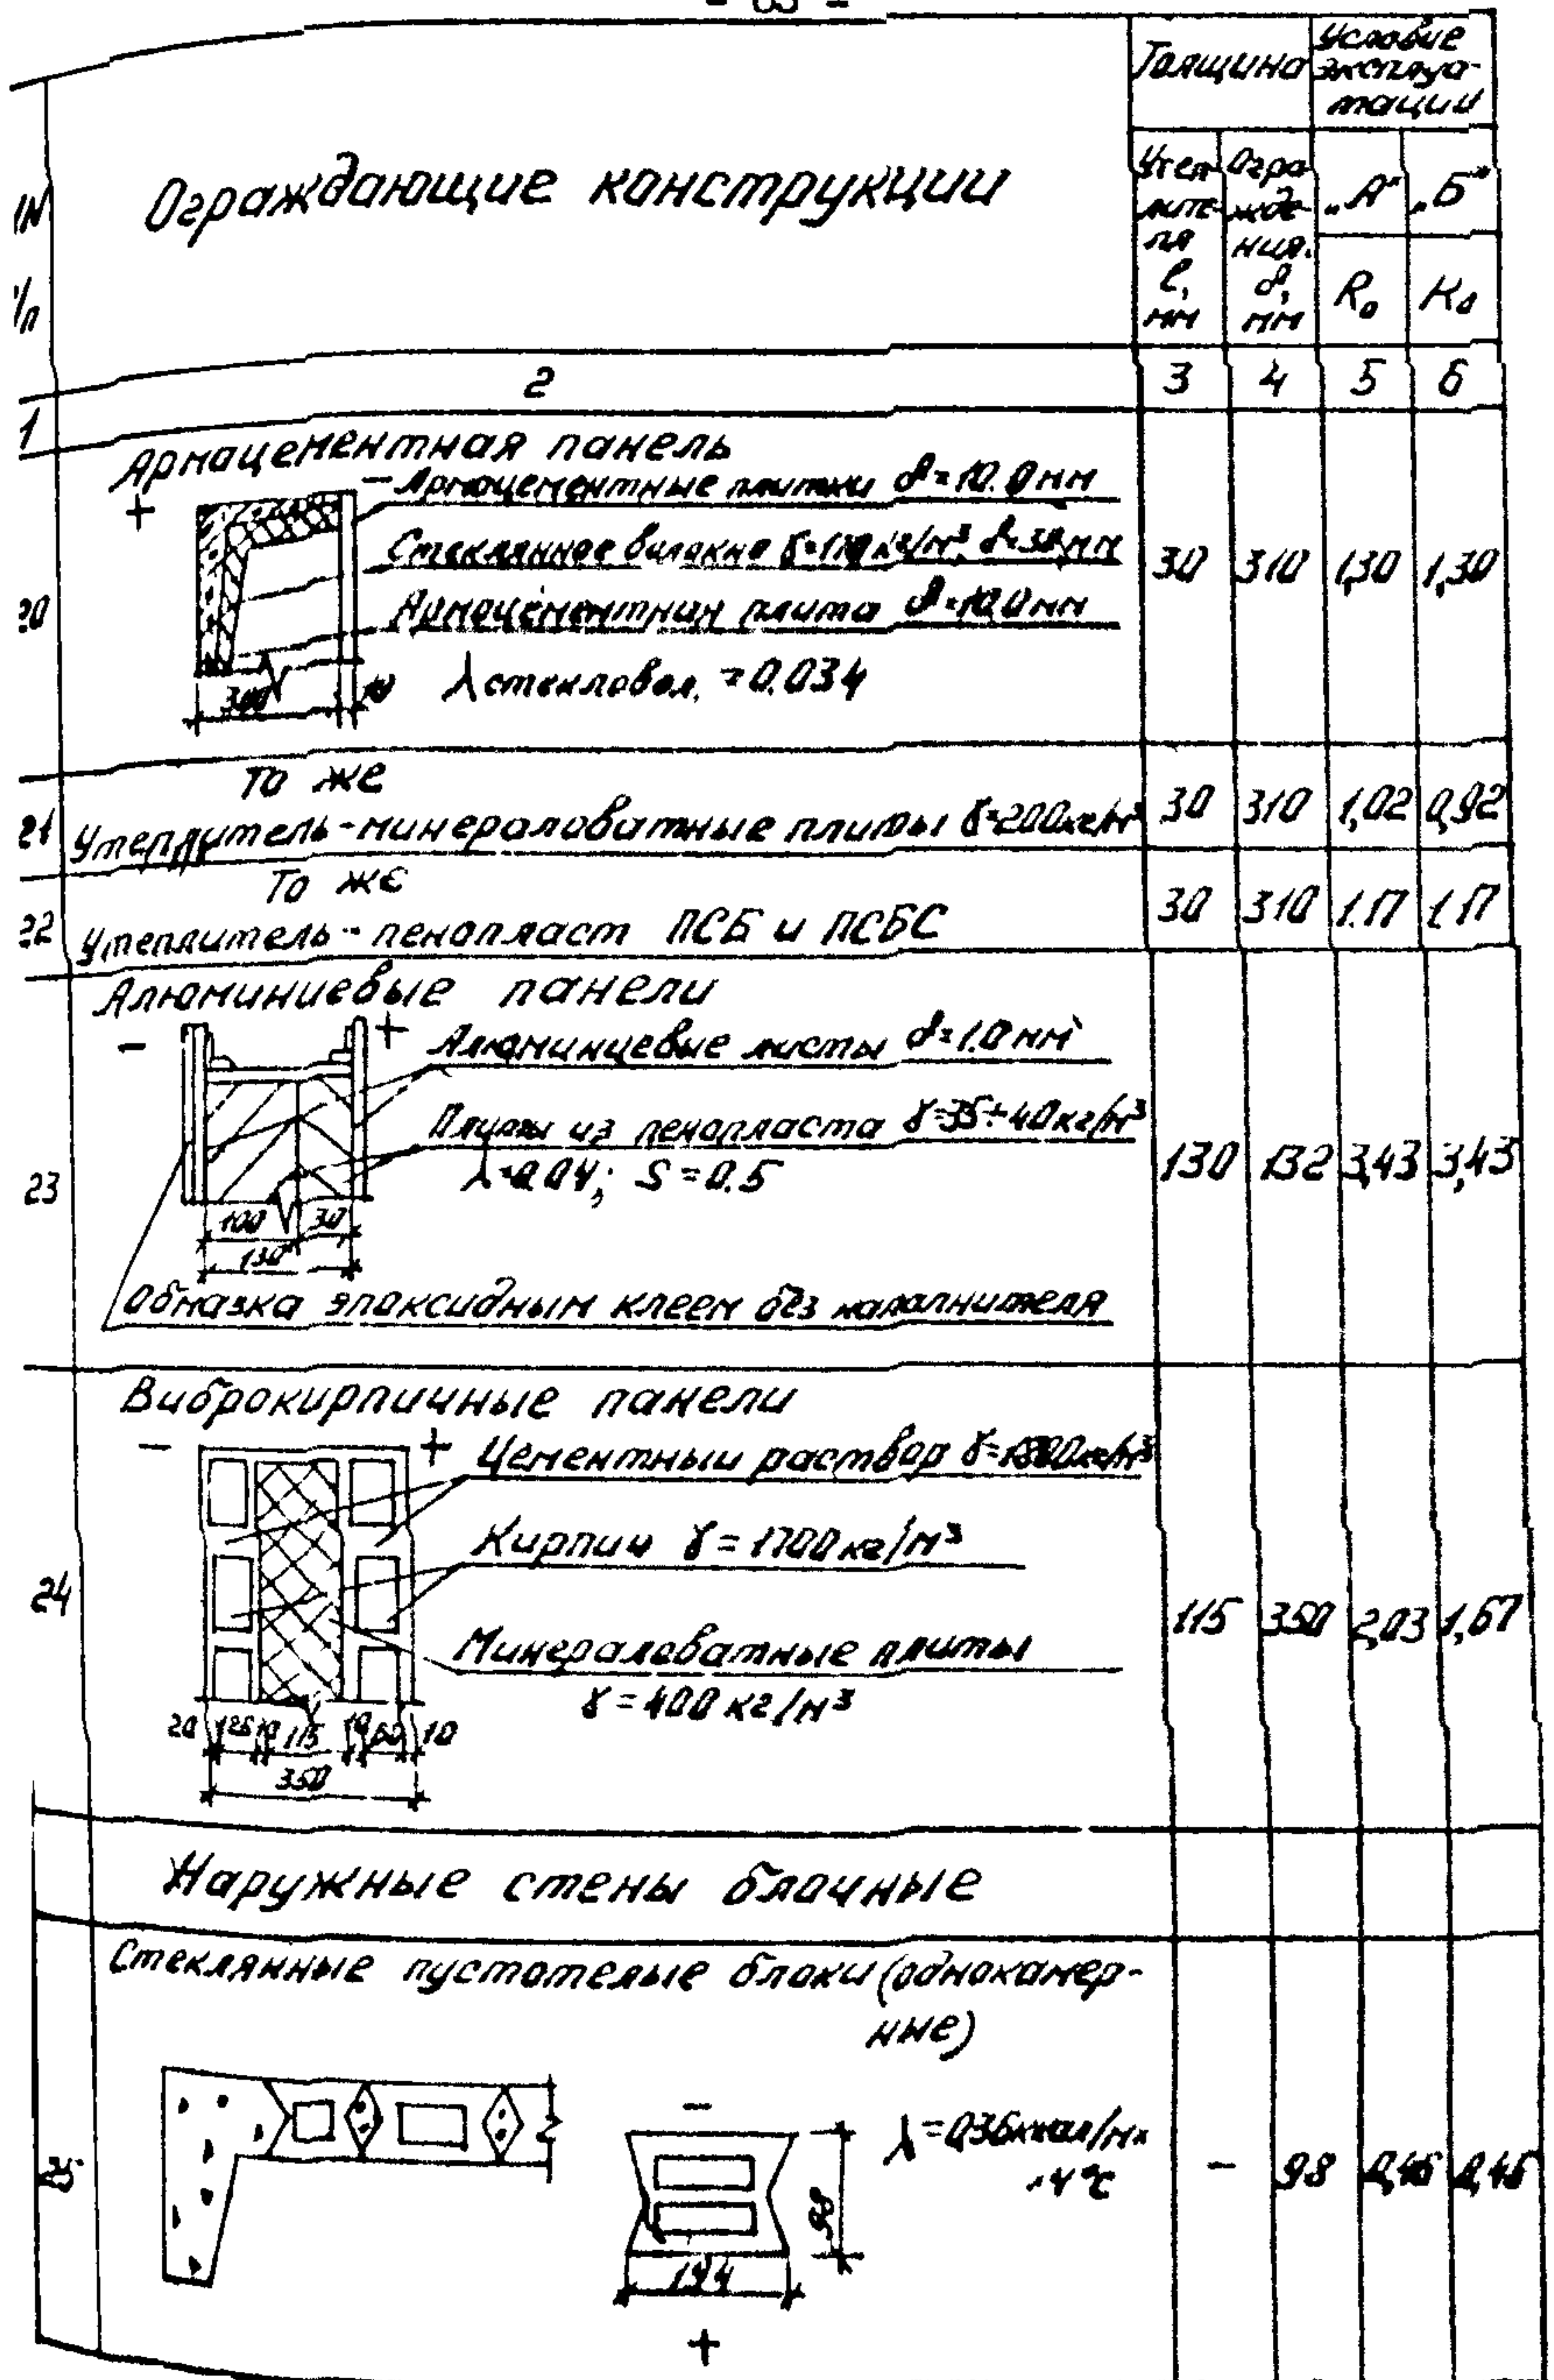 - 63 -
Ограждающие конструкции
Толщина
Условие
эксплуа-
тации
Утеп
лите-
ля
l,
мм
Огра
жде-
ния.
δ,
мм
„А"
„Б"
R₀
R₀
1
2
3
4
5
6
20
Армацементная панель
+
-
Армоцементные плитки δ=10.0мм
Стеклянное волокно
Армоцементная плита δ=10,0мм
λ стекловол. = 0.034
300
10
30
310
1,30
1,30
21
То же
Утеплитель-минераловатные плиты γ=200кг/м³
30
310
1,02
0,92
22
То же
Утеплитель-пенопласт ПСБ и ПСБС
30
310
1.17
1.17
23
Алюминиевые панели
-
+
Алюминиевые листы δ=1.0мм
Плиты из пенопласта γ=35÷40кг/м³
λ=0.04; S=0.5
100
30
130
Обмазка эпоксидным клеем без наполнителя
130
132
3,43
3,43
24
Виброкирпичные панели
-
+
Цементный раствор
Кирпич γ=1700кг/м³
Минераловатные плиты
γ=400кг/м³
20
125
10
115
10
60
10
350
115
350
2,03
1,67
Наружные стены блочные
25
Стеклянные пустотелые блоки (однокамер-
ные)
-
λ=0,36ккал/м×
×ч°С
98
194
+
-
98
0,46
0,46